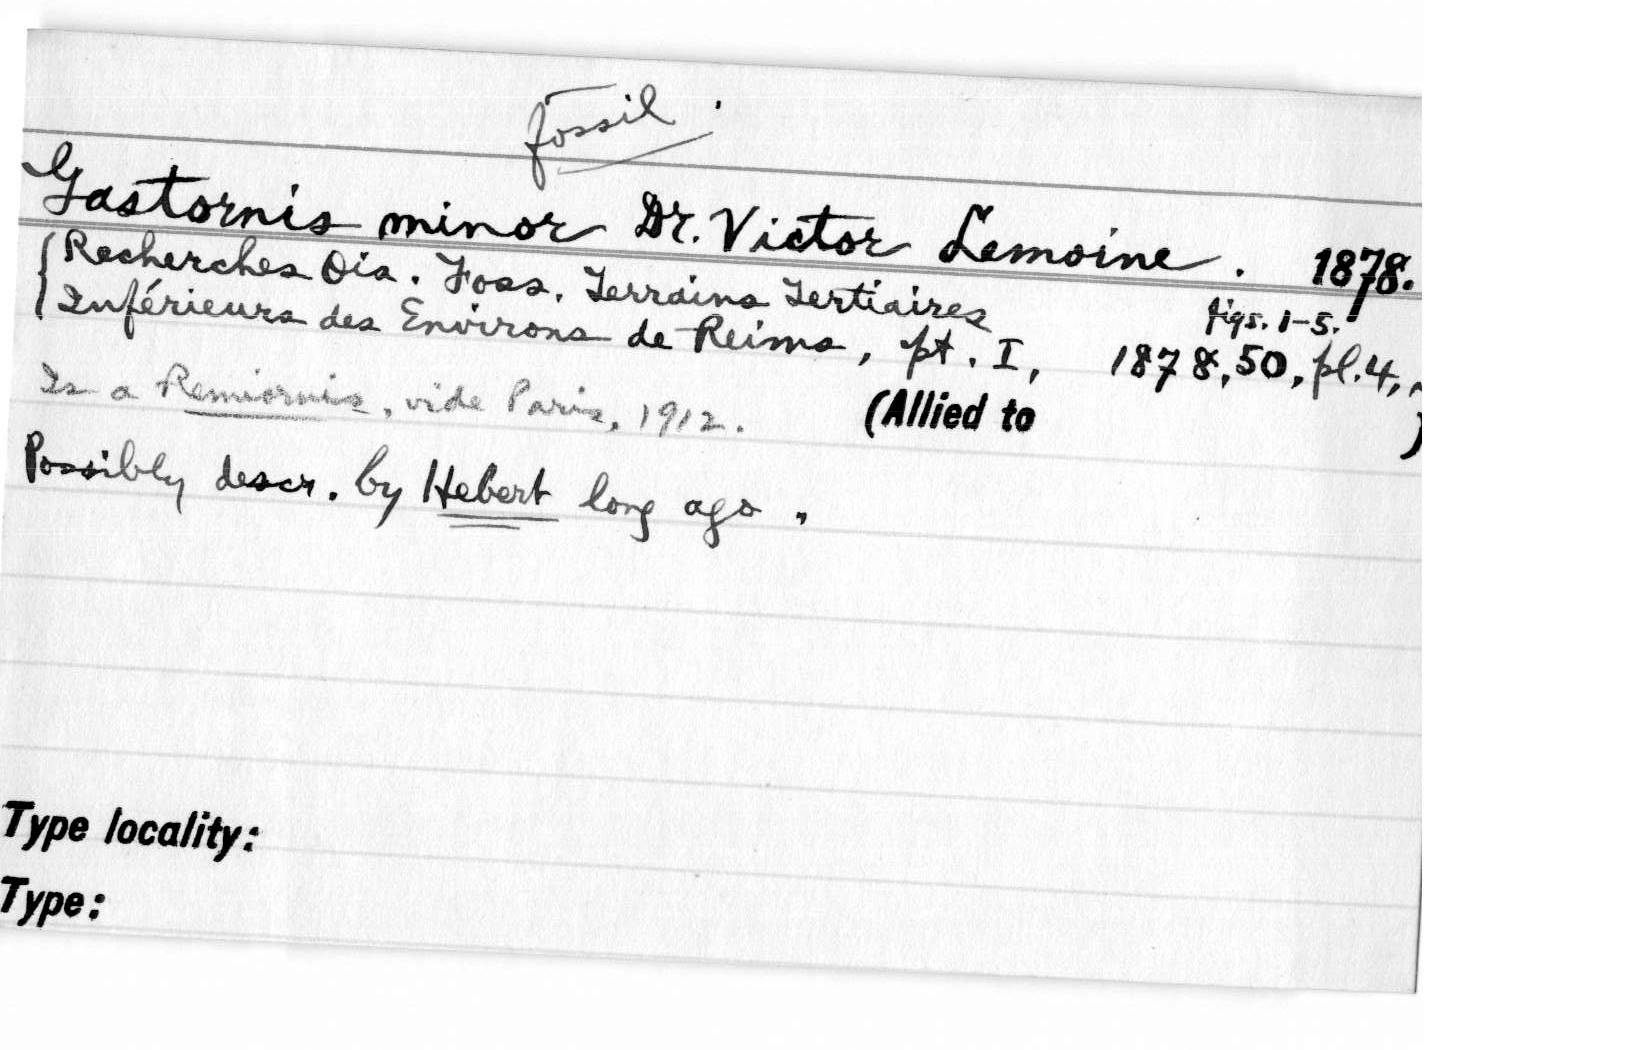 fossil.
Gastornis minor Dr. Victor Lemoine. 1878.
Recherches Ois. Foss. Terrains Tertiaires figs. 1-5.
Inférieurs des Environs de Reims, pt. I, 1878, 50, pl. 4,
Is a Remiornis, vide Paris, 1912. (Allied to )
Possibly descr. by Hebert long ago.
Type locality:
Type: